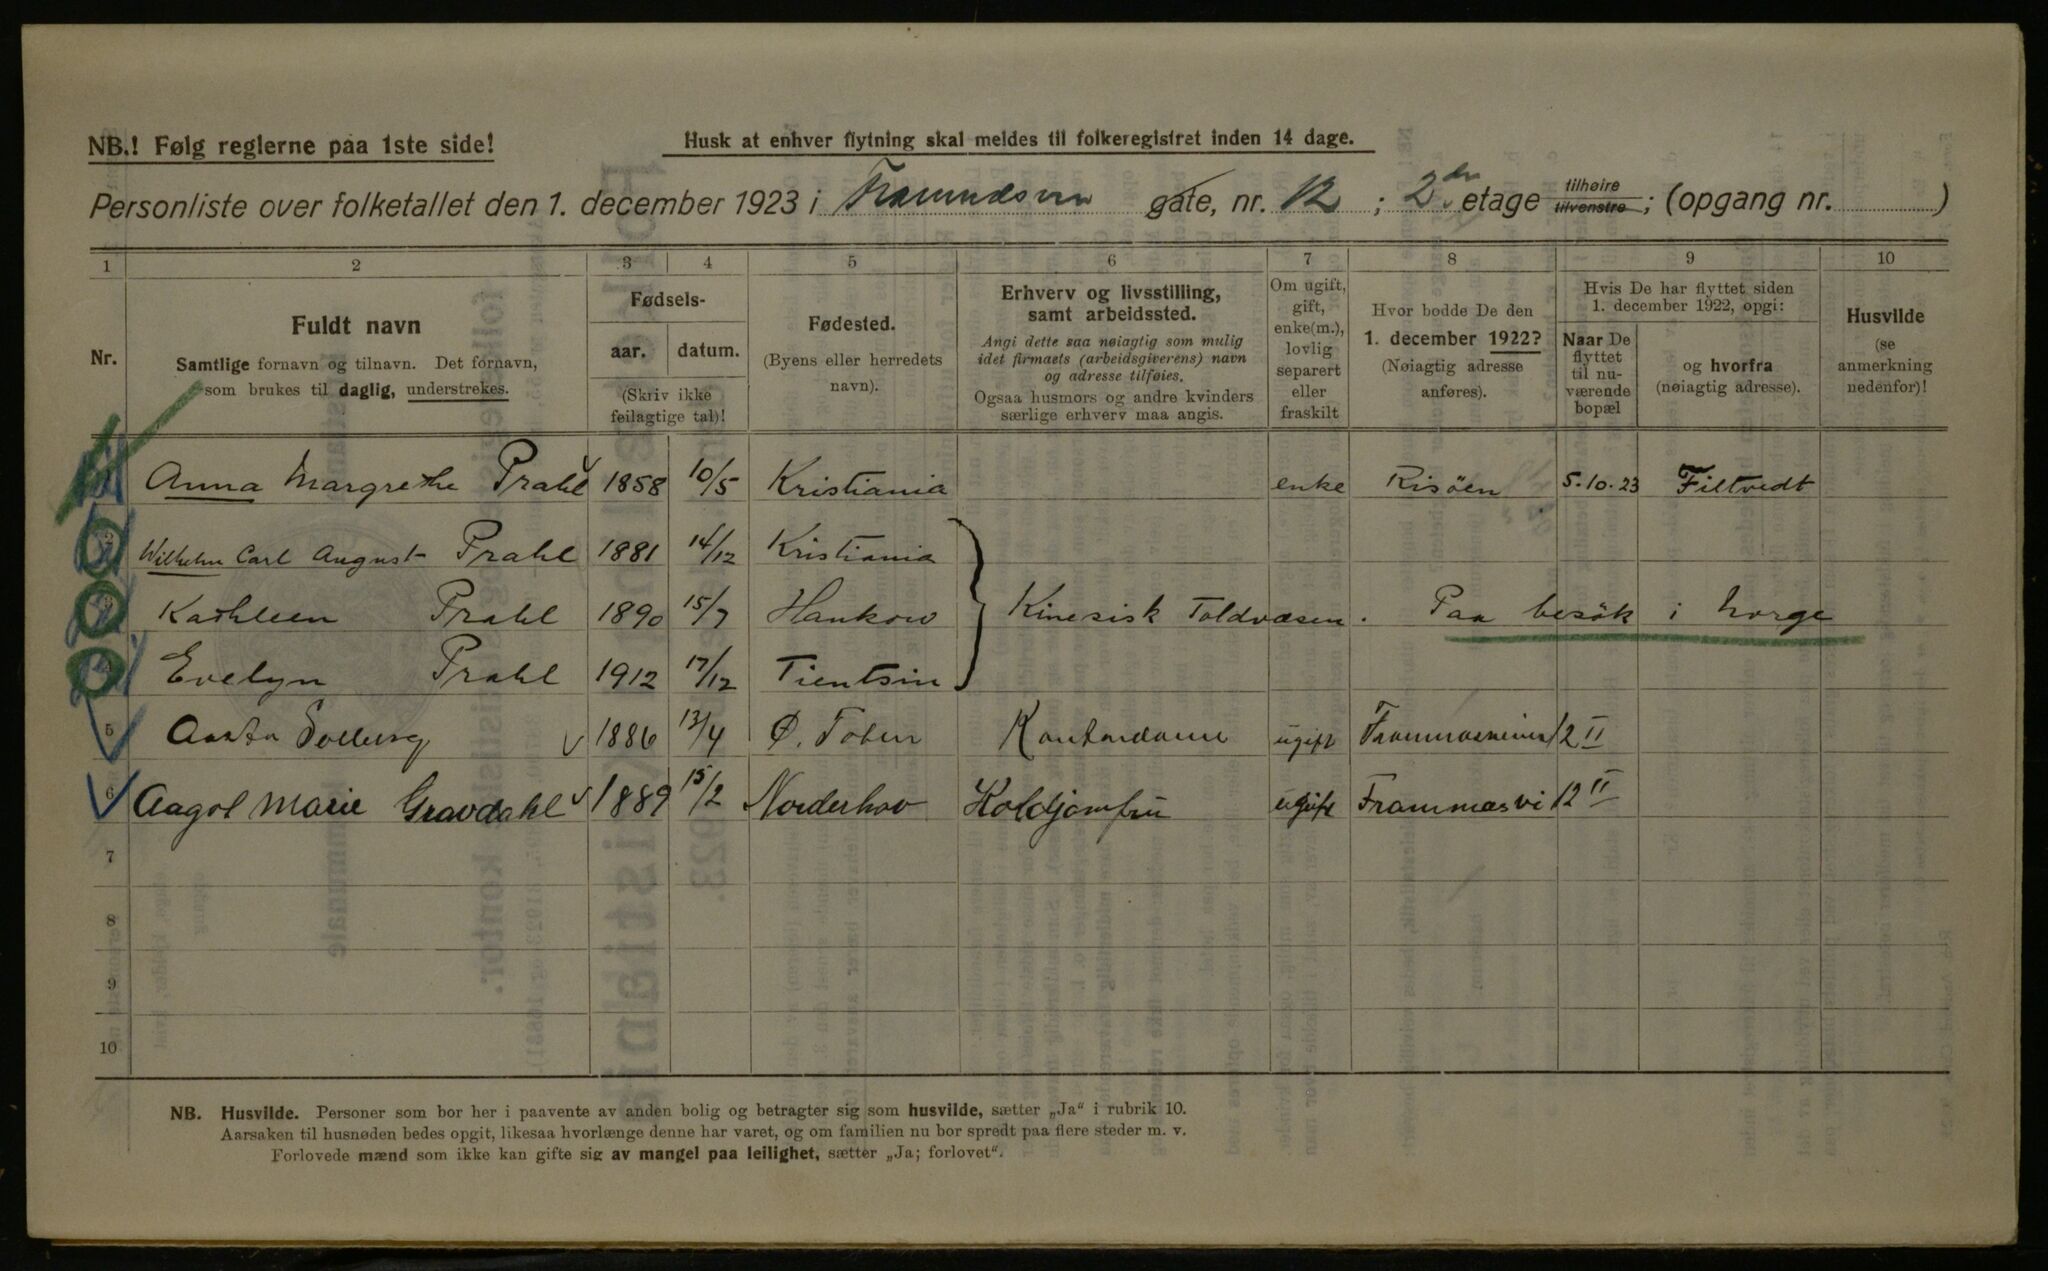 NB.! Følg reglerne paa 1ste side!
Husk at enhver flytning skal meldes til folkeregistret inden 14 dage.
Personliste over folketallet den 1. december 1923 i gate, nr. 12 ; 2den etage tilhøire tilvenstre ; (opgang nr. )
1 2 3 4 5 6 7 8 9 10
Nr.
Fuldt navn
Samtlige fornavn og tilnavn. Det fornavn,
som brukes til daglig, understrekes.
Fødsels-
aar. datum.
(Skriv ikke
feilagtige tal)!
Fødested.
(Byens eller herredets
navn).
Erhverv og livsstilling,
samt arbeidssted.
Angi dette saa nøiagtig som mulig
idet firmaets (arbeidsgiverens) navn
og adresse tilføies.
Ogsaa husmors og andre kvinders
særlige erhverv maa angis.
Om ugift,
gift,
enke(m.),
lovlig
separert
eller
fraskilt
Hvor bodde De den
1. december 1922?
(Nøiagtig adresse
anføres).
Hvis De har flyttet siden
1. december 1922, opgi:
Naar De
flyttet
til nu-
værende
bopæl
og hvorfra
(nøiagtig adresse).
Husvilde
(se
anmerkning
nedenfor)!
Anna Margrethe Prahl 1858 10/5 Kristiania enke Risöen 5.10.23 Filtvedt
2 Wilhelm Carl August Prahl 1881 14/12 Kristiania
3 Kathleen Prahl 1890 15/7 Hankow Kinesisk Toldvæsen. Paa besök i Norge
4 Evelyn Prahl 1912 17/12 Tientsin
5 Aasta Solberg 1886 13/4 Ø. Toten Kontordame ugift 12 II
6 Aagot Marie Gravdahl 1889 15/2 Norderhov Holdjomfru ugift Frammæsvi 12 II
7
8
9
10
NB. Husvilde. Personer som bor her i paavente av anden bolig og betragter sig som husvilde, sætter „Ja“ i rubrik 10.
Aarsaken til husnøden bedes opgit, likesaa hvorlænge denne har varet, og om familien nu bor spredt paa flere steder m. v.
Forlovede mænd som ikke kan gifte sig av mangel paa leilighet, sætter „Ja; forlovet“.